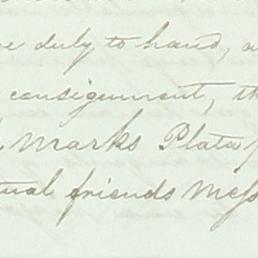 duly to hand,
consignment, th
Marks Plata
tual friends Mess